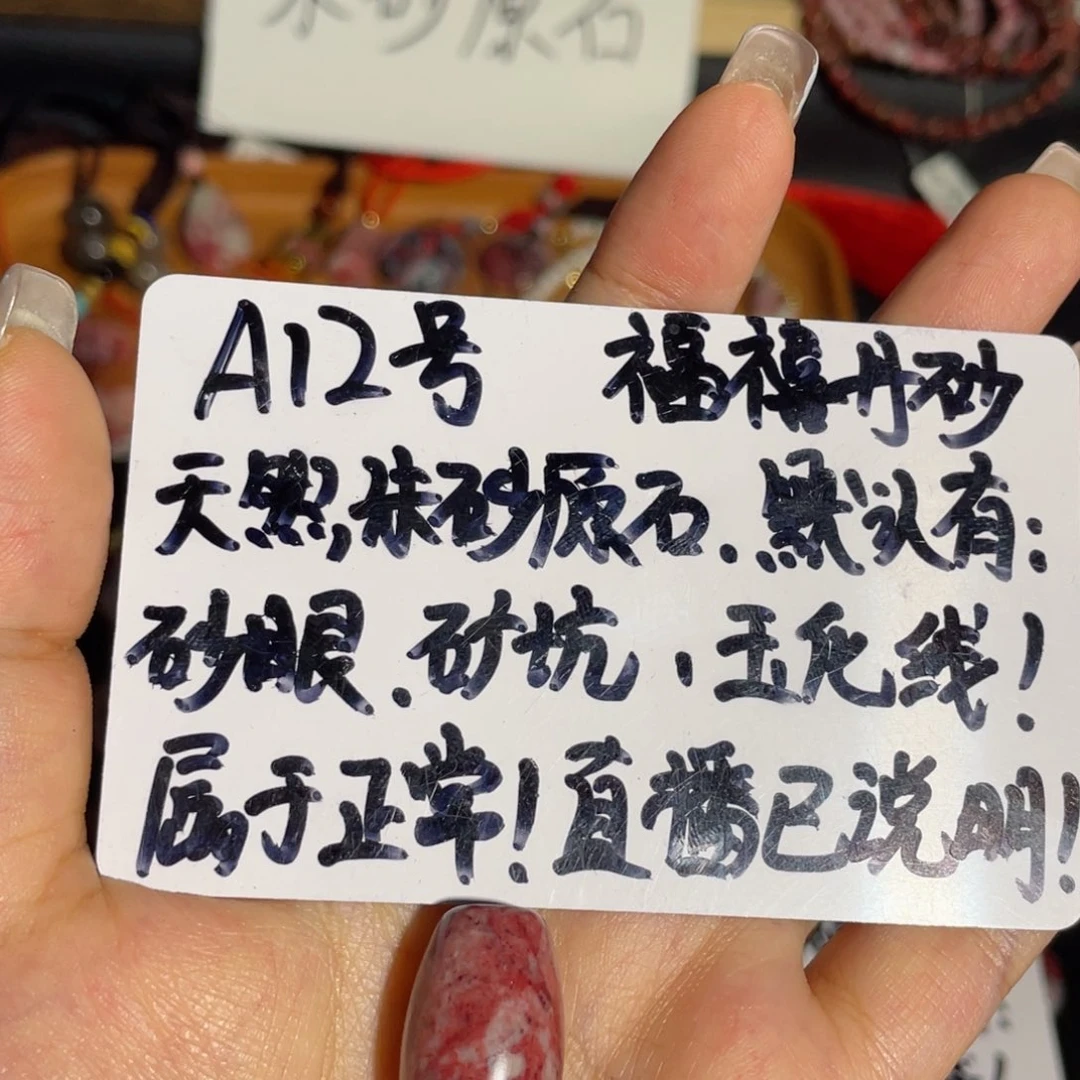 朱砂原石
A12号 福禧丹砂
天然,朱砂原石.默认有:
砂眼.矿坑.玉化线!
属于正常!直播已说明!